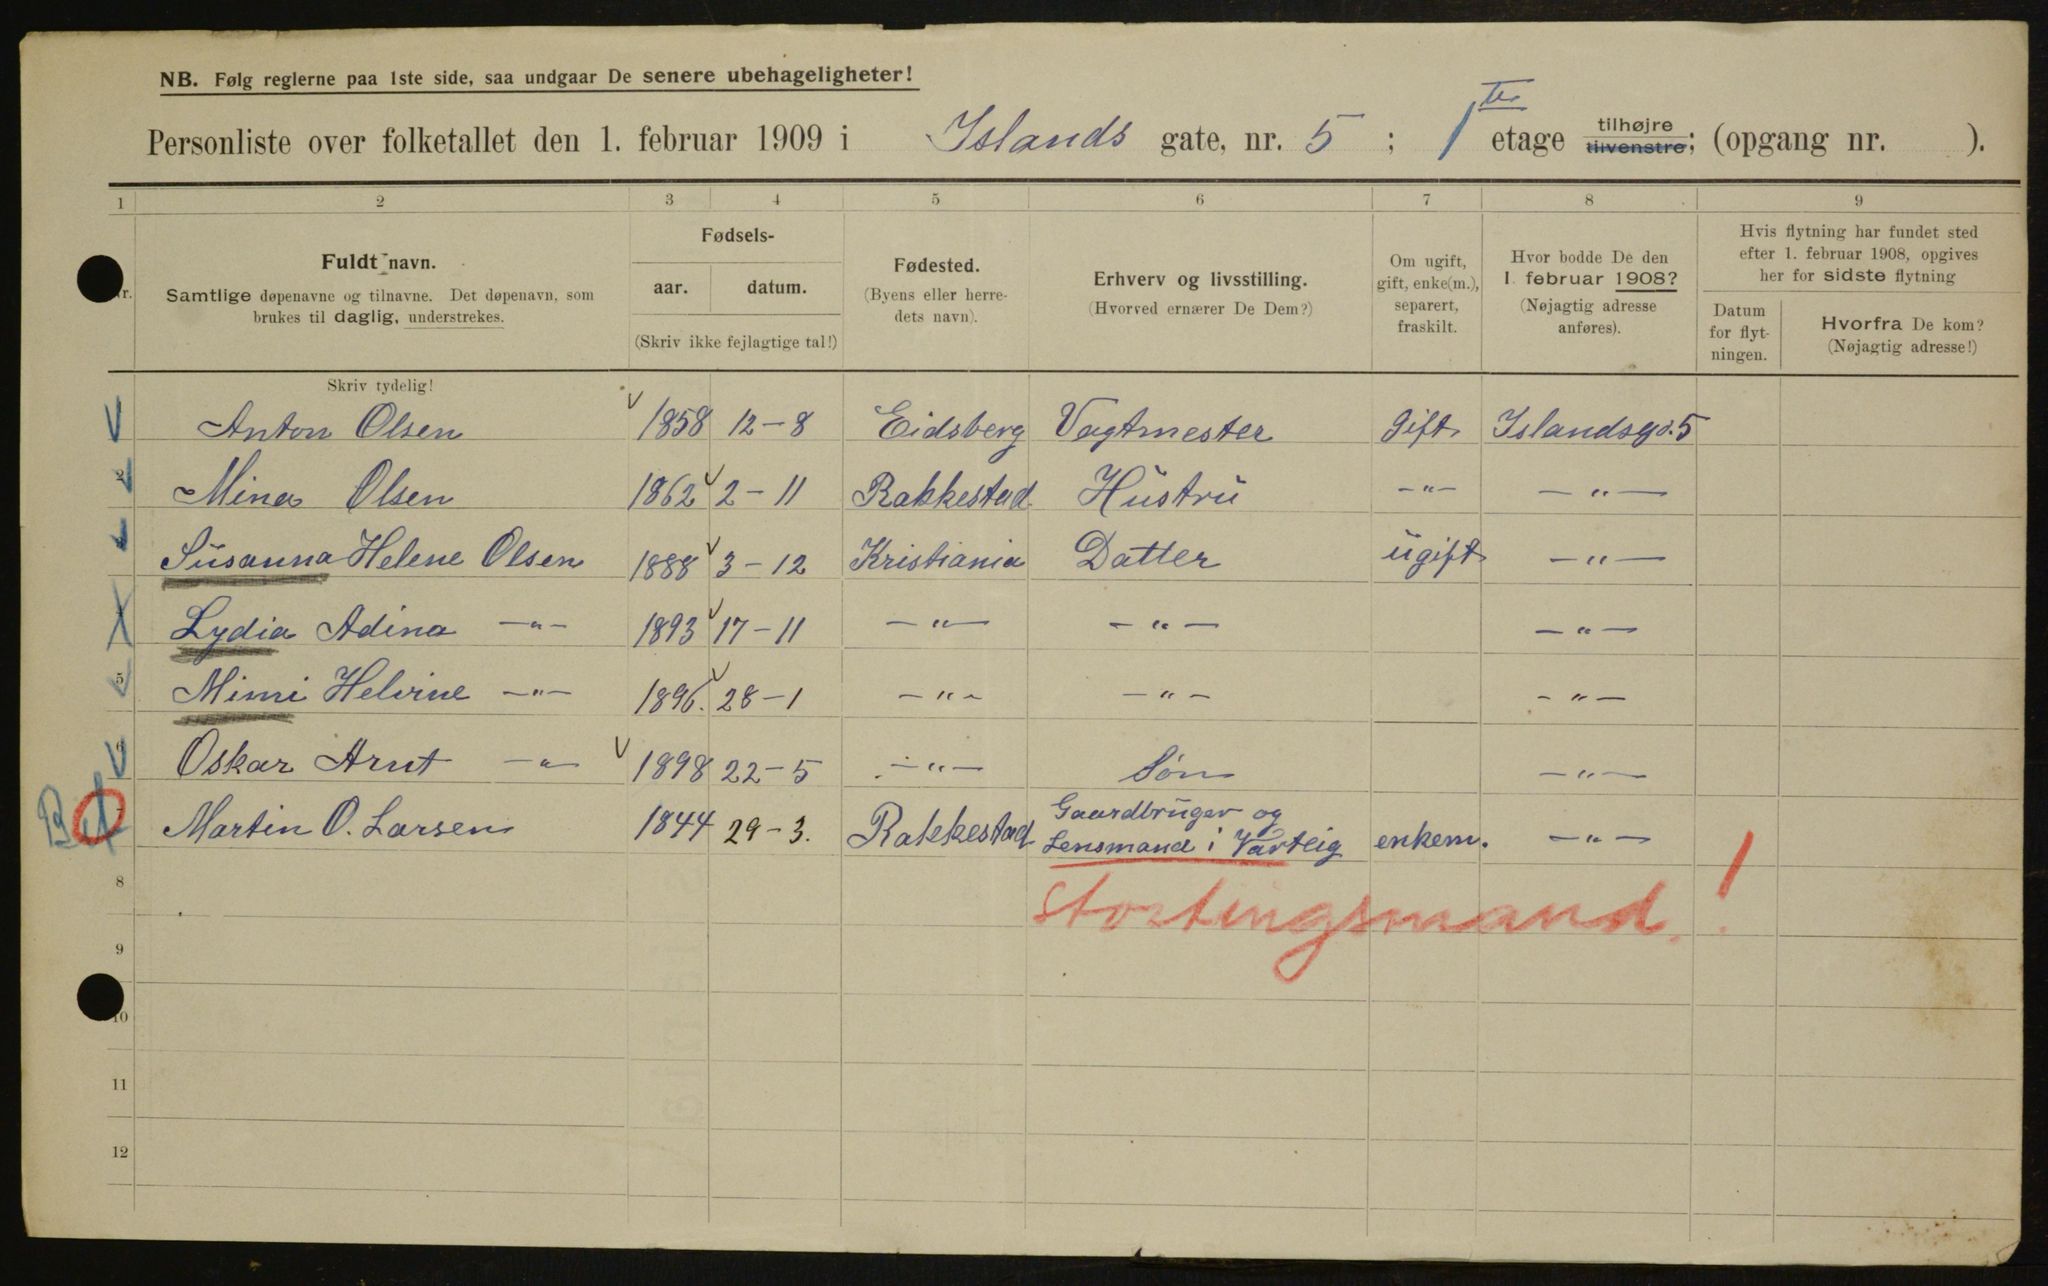 NB. Følg reglerne paa 1ste side, saa undgaar De senere ubehageligheter!
Personliste over folketallet den 1. februar 1909 i Islands gate, nr. 5 ; 1ste etage tilhøjre tilvenstre; (opgang nr. ).
1 2 3 4 5 6 7 8 9
Nr.
Fuldt navn.
Samtlige døpenavne og tilnavne. Det døpenavn, som
brukes til daglig, understrekes.
Skriv tydelig!
Fødsels-
aar. datum.
(Skriv ikke fejlagtige tal!)
Fødested.
(Byens eller herre-
dets navn).
Erhverv og livsstilling.
(Hvorved ernærer De Dem?)
Om ugift,
gift, enke(m.),
separert,
fraskilt.
Hvor bodde De den
1. februar 1908?
(Nøjagtig adresse
anføres).
Hvis flytning har fundet sted
efter 1. februar 1908, opgives
her for sidste flytning
Datum
for flyt-
ningen.
Hvorfra De kom?
(Nøjagtig adresse!)
Anton Olsen 1858 12-8 Eidsberg Vagtmester Gift Islandsgd. 5
2 Mina Olsen 1862 2-11 Rakkestad Hustru -"- -"-
Susanna Helene Olsen 1888 3-12 Kristiania Datter ugift -"-
Lydia Adina -"- 1893 17-11 -"- -"- -"-
5 Mimi Helvine -"- 1896. 28-1 -"- -"- -"-
6 Oskar Arnt -"- 1898 22-5 -"- Søn -"-
7 Martin O. Larsen 1844 29-3. Rakkestad Gaardbruger og
Lensmand i Varteig enkem. -"-
Stortingsmand. !
8
9
10
11
12